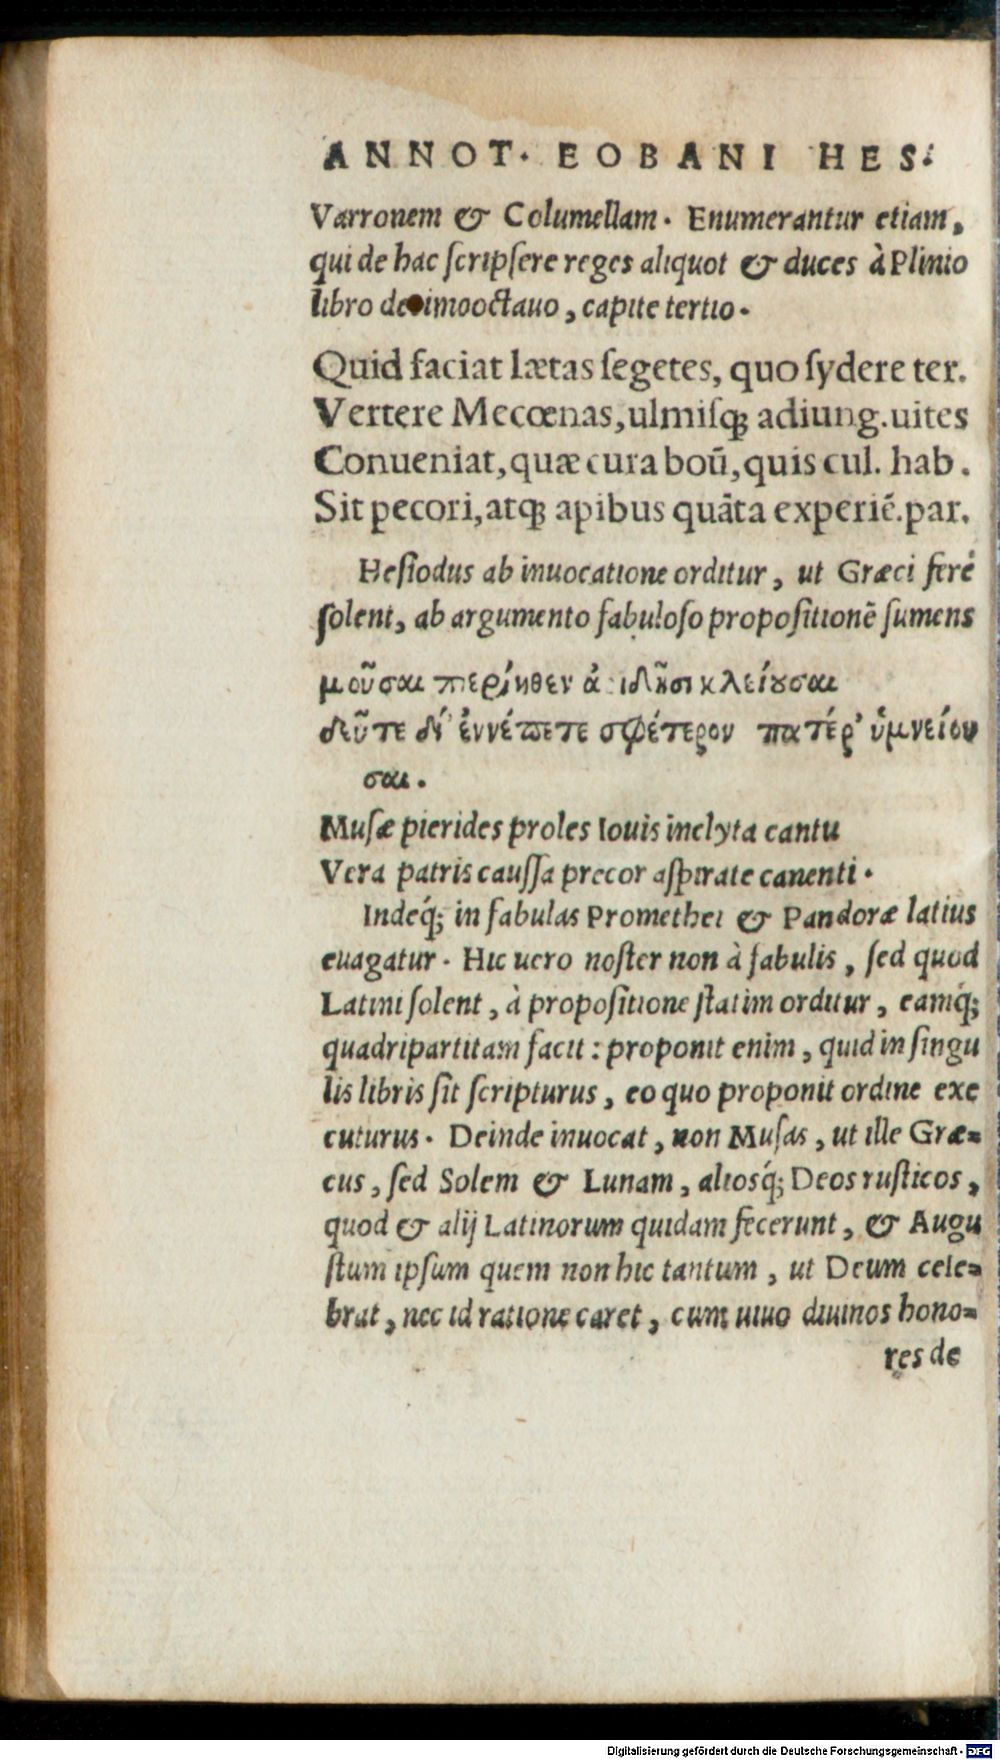 ANNOT. EOBANI HES.
Varronem & Columellam. Enumerantur etiam,
qui de hac ſcripſere reges aliquot & duces à Plinio
libro decimooctauo, capite tertio.
Quid faciat lætas ſegetes, quo ſydere ter.
Vertere Mecœnas, ulmiſq; adiung. uites
Conueniat, quæ cura boū, quis cul. hab.
Sit pecori, atq; apibus quāta experiē. par.
Heſiodus ab inuocatione orditur, ut Græci ferè
ſolent, ab argumento fabuloſo propoſitionē ſumens
μοῦσαι περίηθεν ἀ ιδῆσι κλείουσαι
δεῦτε δί ἐννέπετε σφέτερον πατέρ' ὑμνείου
σαι.
Muſæ pierides proles Iouis inclyta cantu
Vera patris cauſſa precor aſpirate canenti.
Indeq́; in fabulas Promethei & Pandoræ latius
euagatur. Hic uero noſter non à fabulis, ſed quod
Latini ſolent, à propoſitione ſtatim orditur, eamq́;
quadripartitam facit: proponit enim, quid in ſingu
lis libris ſit ſcripturus, eo quo proponit ordine exe
cuturus. Deinde inuocat, non Muſas, ut ille Græ=
cus, ſed Solem & Lunam, aliosq́; Deos ruſticos,
quod & alij Latinorum quidam fecerunt, & Augu
ſtum ipſum quem non hic tantum, ut Deum cele=
brat, nec id ratione caret, cum uiuo diuinos hono=
res de
Digitalisierung gefördert durch die Deutsche Forschungsgemeinschaft - DFG